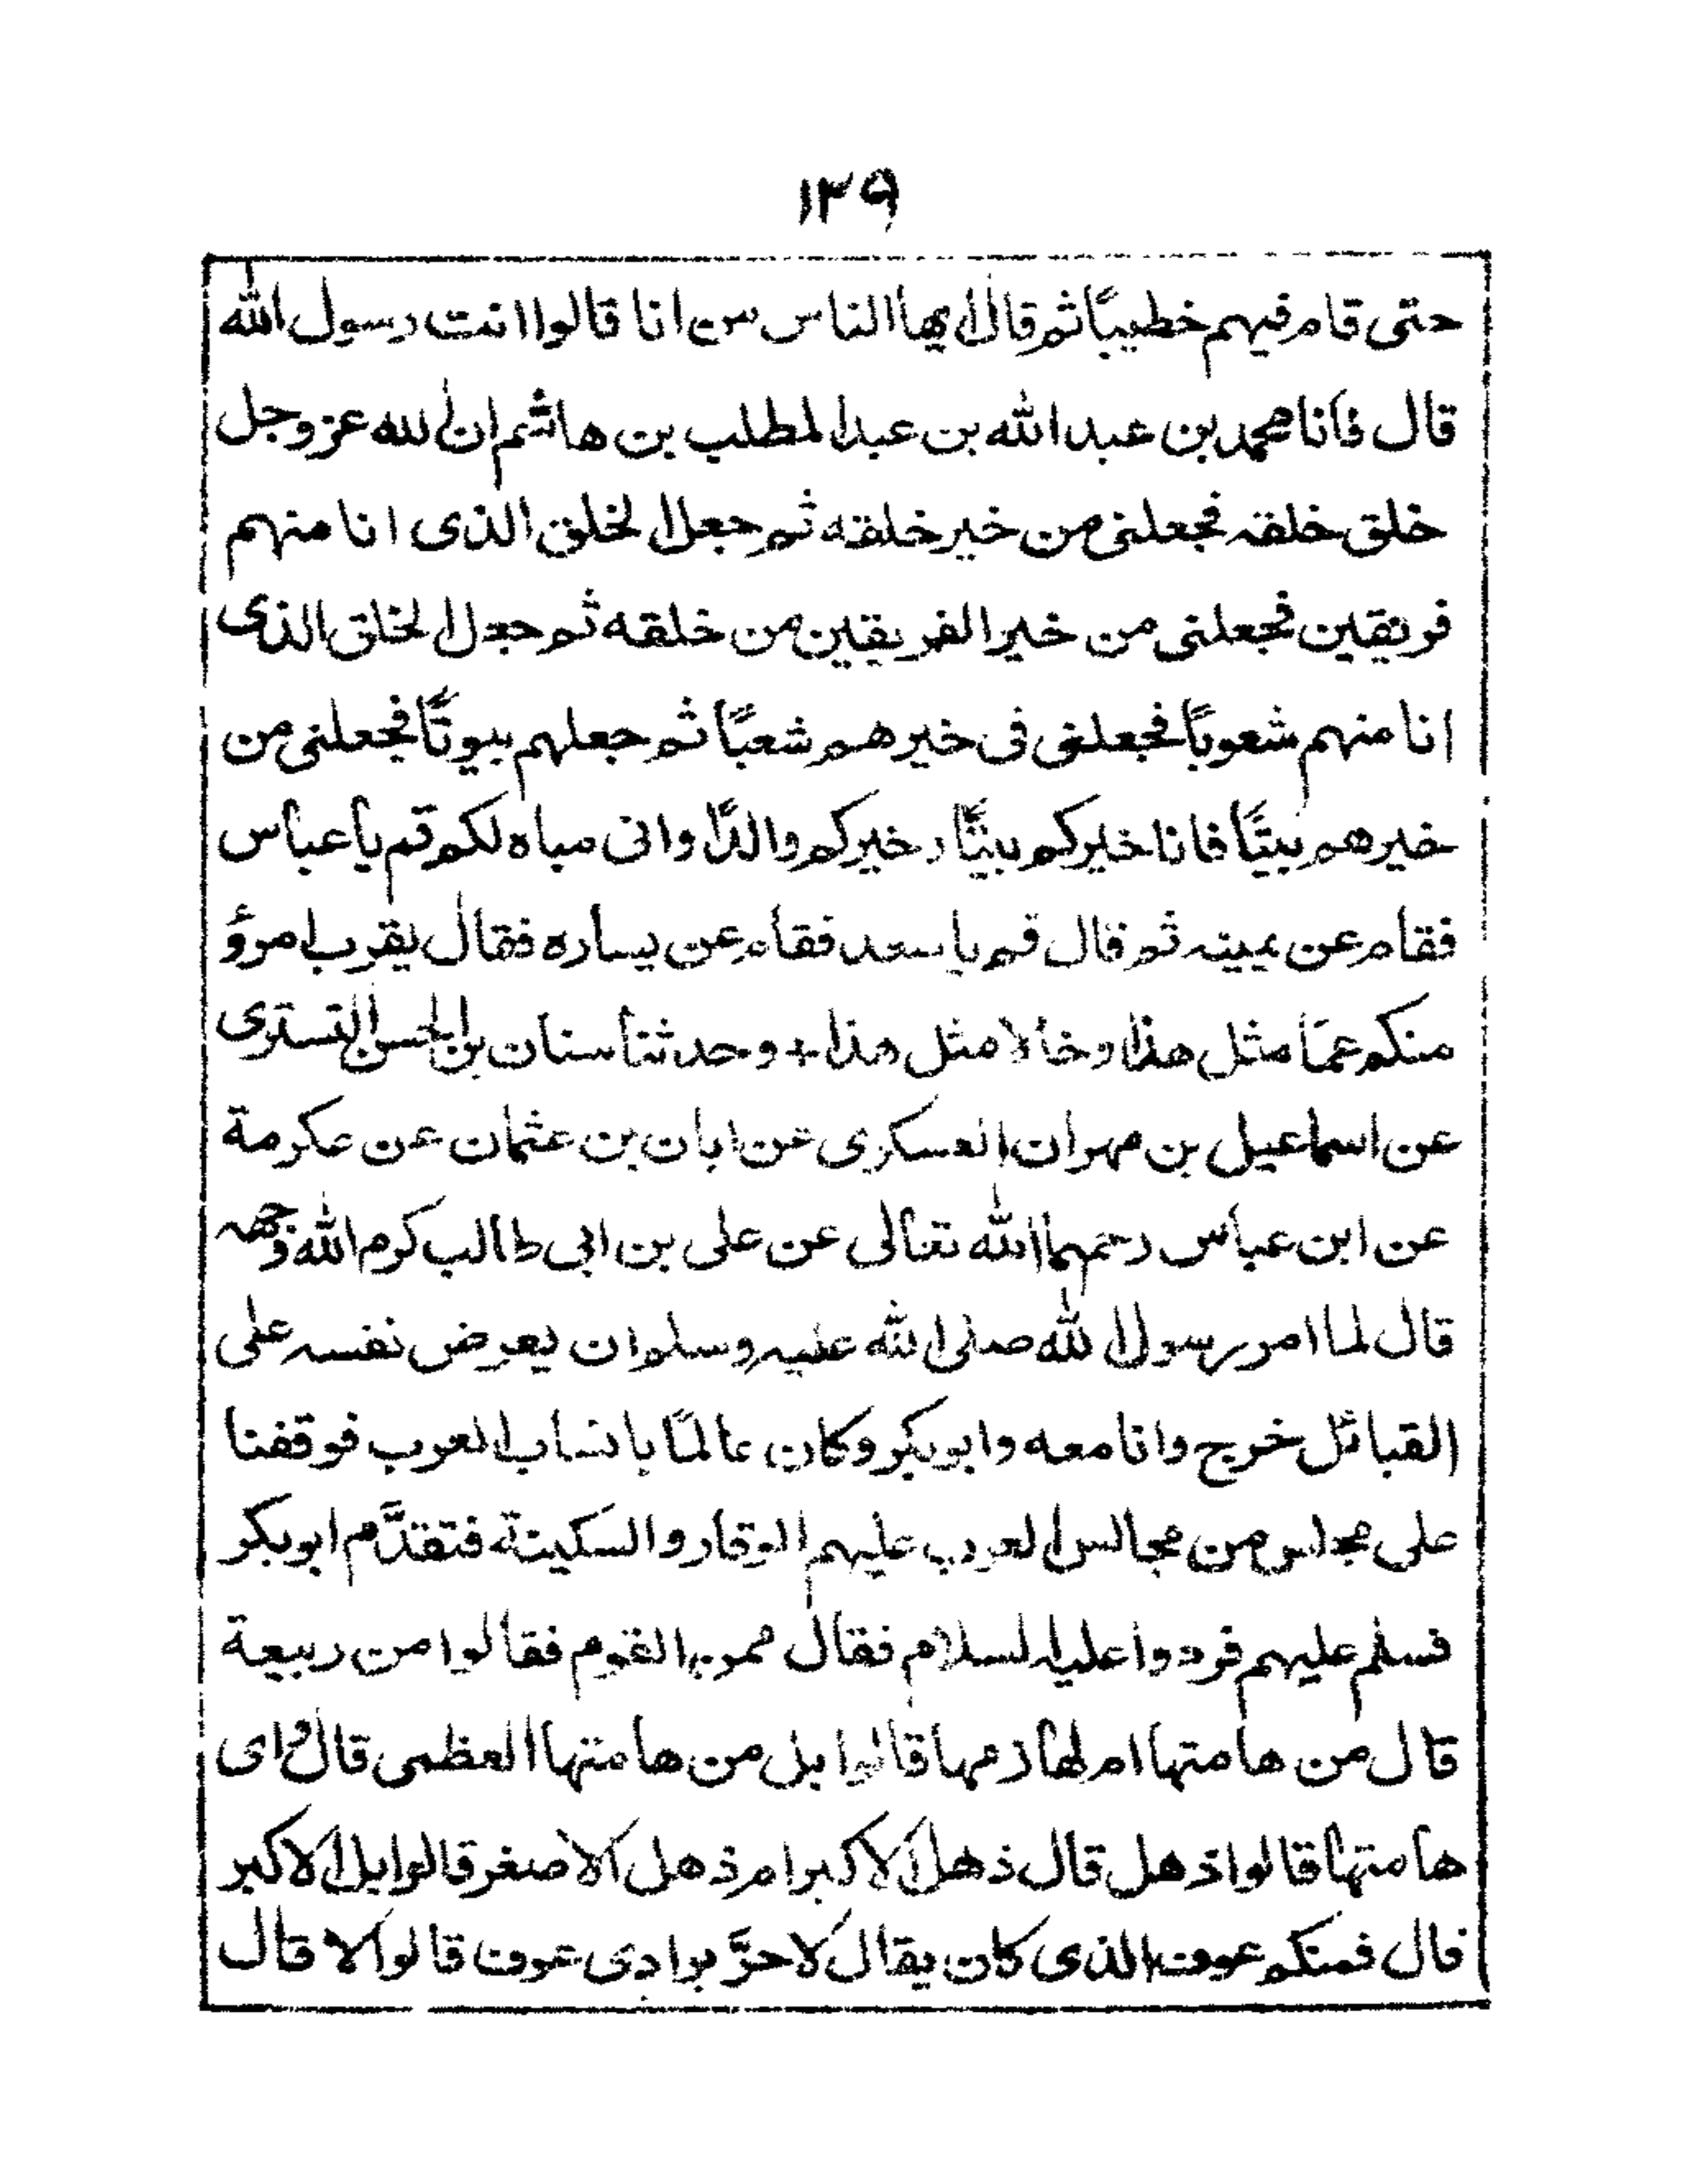 ١٣٩
حتى قام فيهم خطيباً ثم قال ايها الناس من انا قالوا انت رسول الله
قال فانا محمد بن عبد الله بن عبد المطلب بن هاشم ان الله عز وجل
خلق خلقه فجعلنى من خير خلقه ثم جعل الخلق الذى انا منهم
فريقين فجعلنى من خير الفريقين من خلقه ثم جعل الخلق الذى
انا منهم شعوباً فجعلنى فى خيرهم شعباً ثم جعلهم بيوتاً فجعلنى من
خيرهم بيتاً فانا خيركم بيتاً وخيركم والداً وانى مباه لكم قم يا عباس
فقام عن يمينه ثم قال قم يا سعد فقام عن يساره فقال يقرب امرؤ
منكم عماً مثل هذا وخالا مثل هذا + وحدثنا سنان بن الحسن التسترى
عن اسماعيل بن مهران العسكرى عن ابان بن عثمان عن عكرمة
عن ابن عباس رحمهما الله تعالى عن على بن ابى طالب كرم الله وجهه
قال لما امر رسول الله صلى الله عليه وسلم ان يعرض نفسه على
القبائل خرج وانا معه وابو بكر وكان عالماً بانساب العرب فوقفنا
على مجلس من مجالس العرب عليهم الوقار والسكينة فتقدَّم ابو بكر
فسلم عليهم فردوا عليه السلام فقال ممن القوم فقالوا من ربيعة
قال من هامتها ام لهازمها قالوا بل من هامتها العظمى قال واى
هامتها قالوا ذهل قال ذهل الاكبر ام ذهل الاصغر قالوا بل الاكبر
قال فمنكم عوف الذى كان يقال لا حرَّ بوادى عوف قالوا لا قال